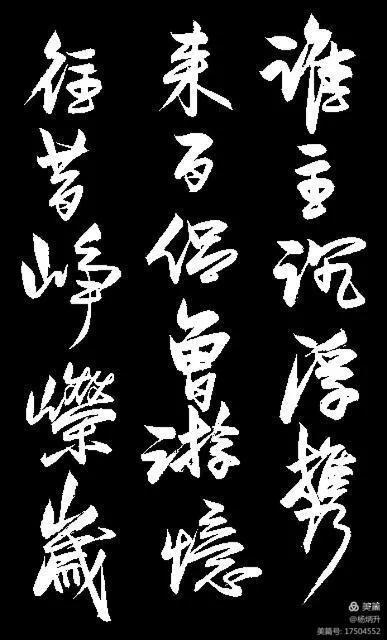 谁主沉浮携
来百侣曾游憶
往昔峥嵘歲
美篇
@杨炳升
美篇号: 17504552